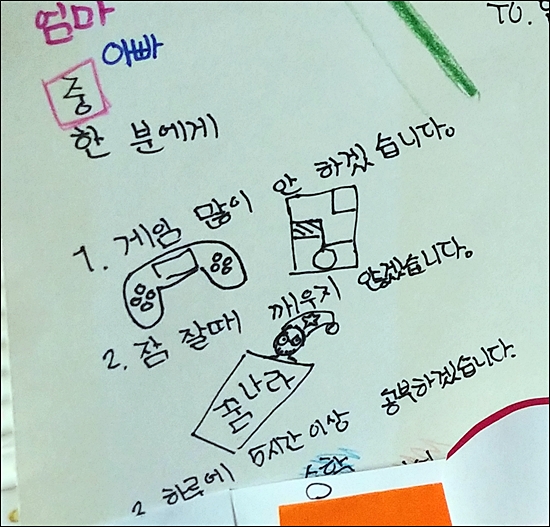 엄마
아빠
중
한 분에게
TO.
1. 게임 많이 안 하겠습니다.
2. 잠 잘때 깨우지 않겠습니다.
꿈나라
하루에 5시간이상 공부하겠습니다.
수학